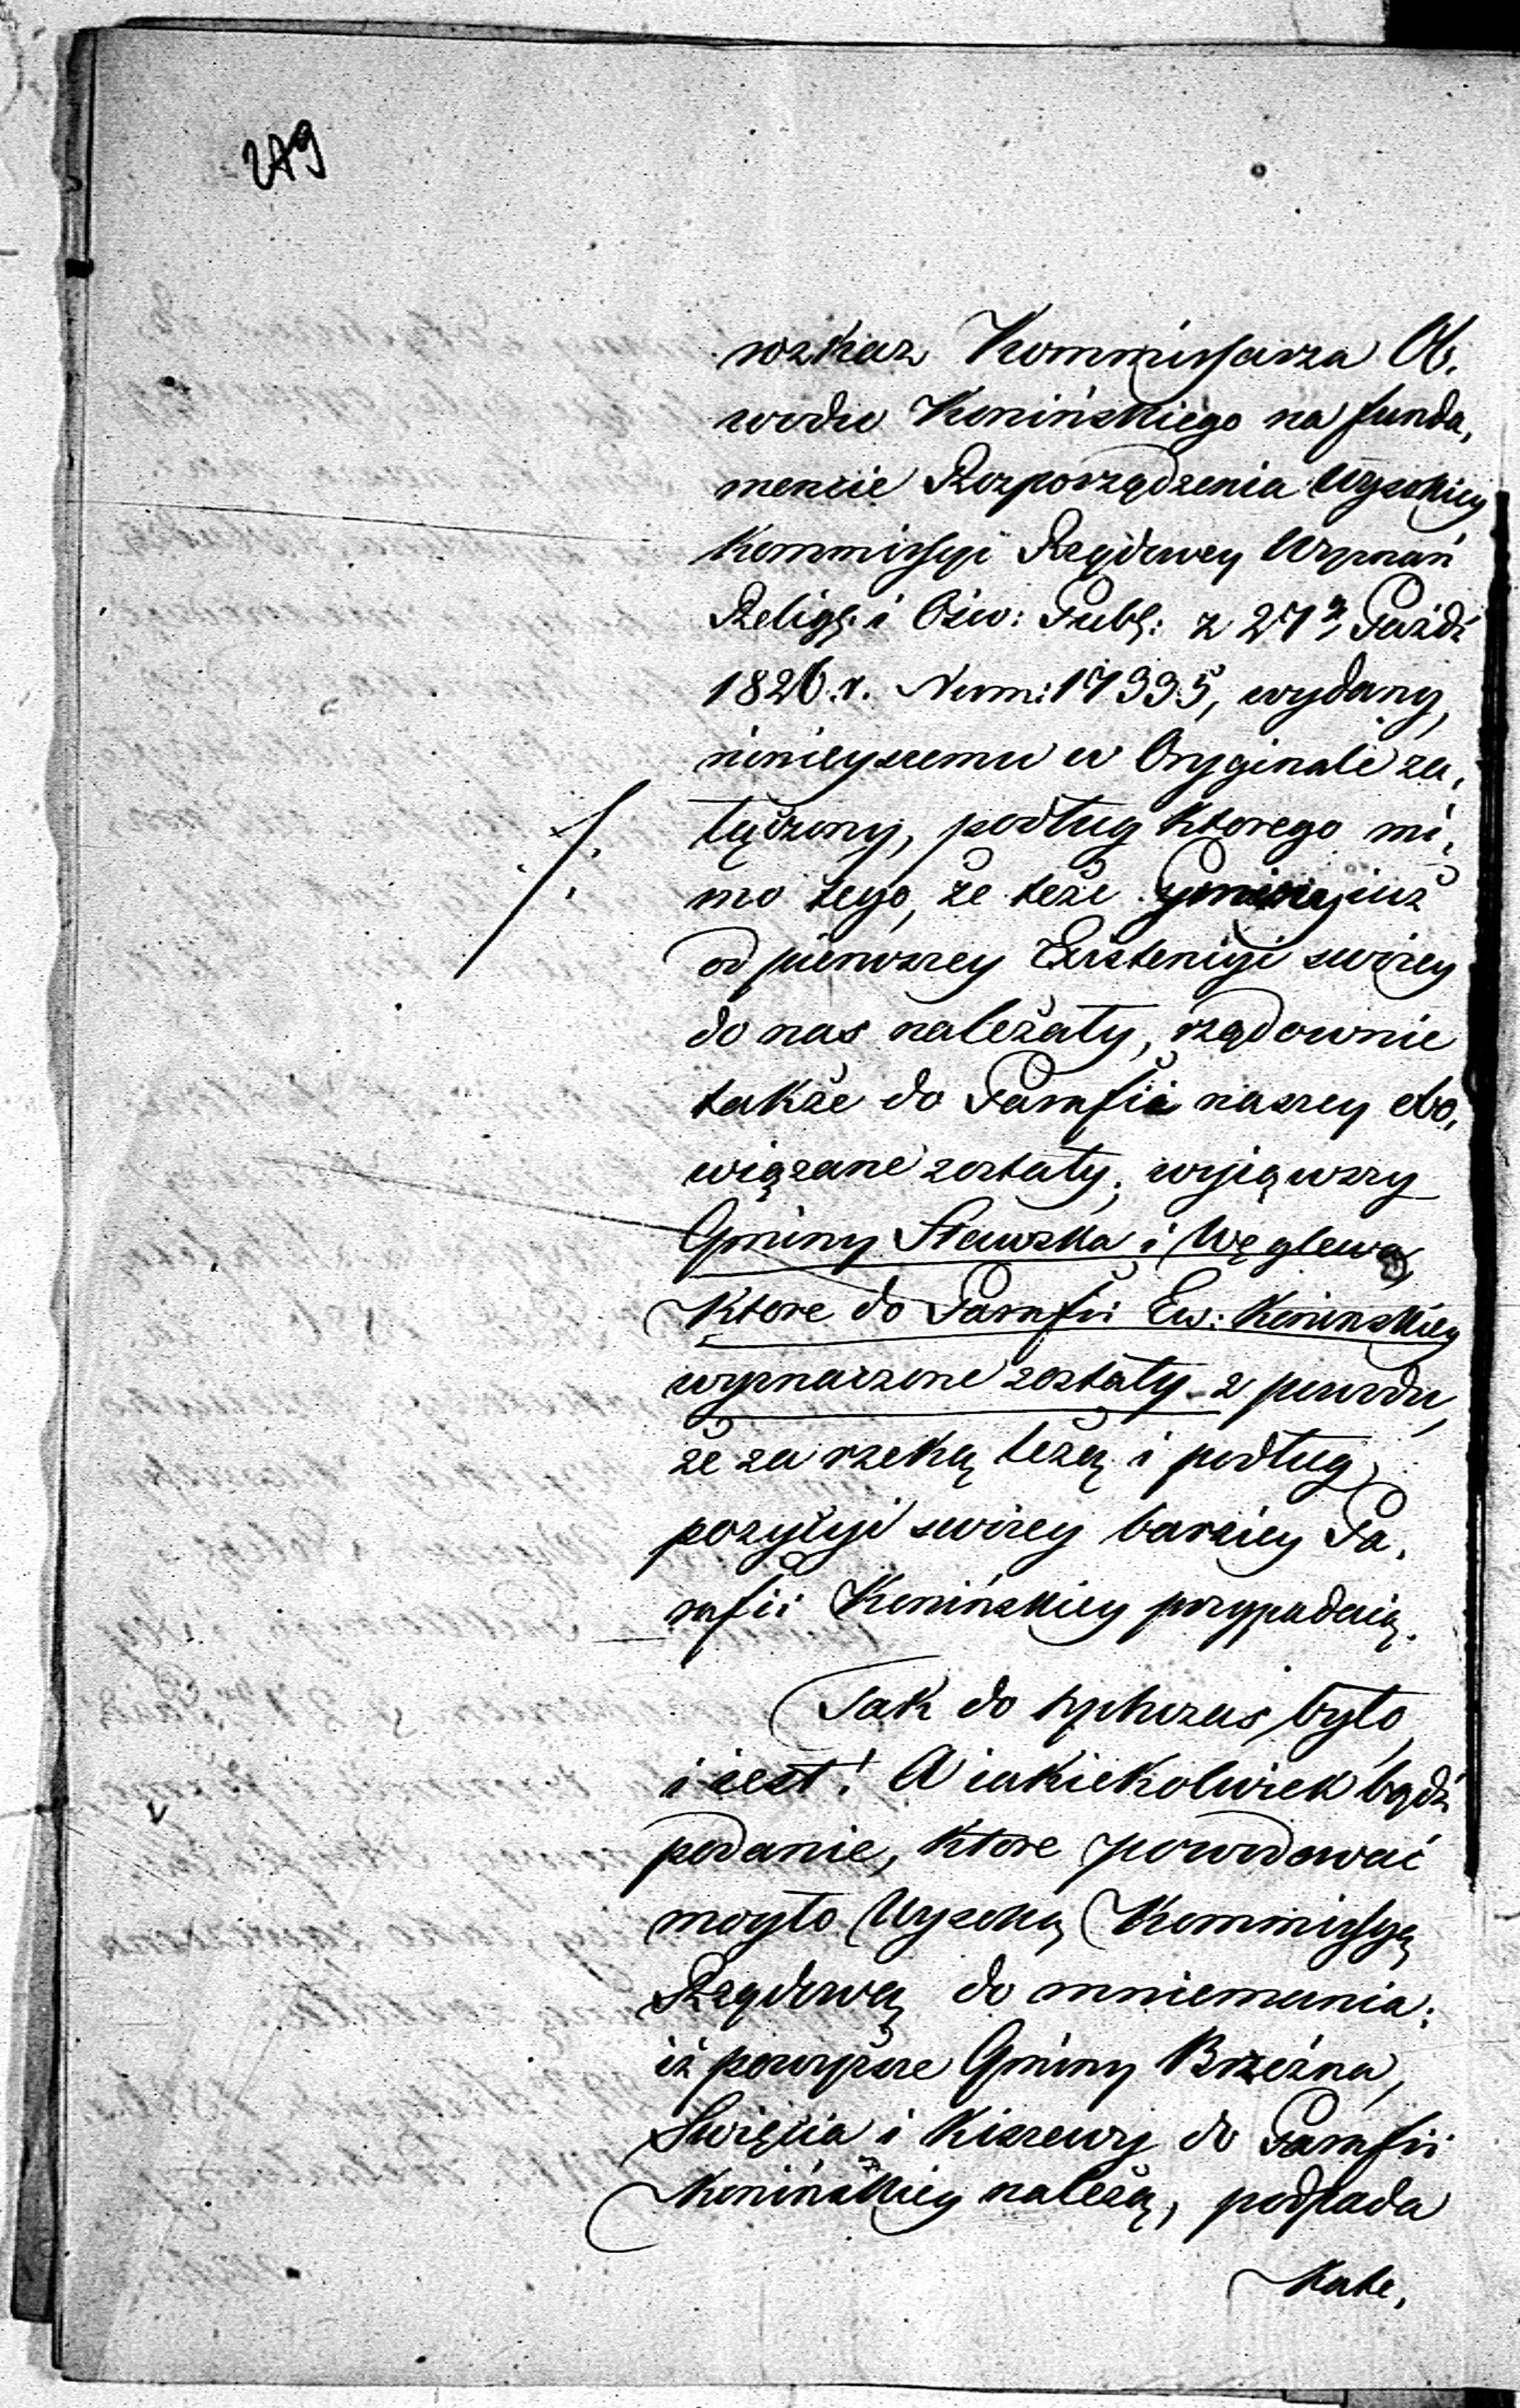 279
rozkaz Kommissarza Ob,
wodu Konińskiego na funda,
mencie Rozporządzenia Wysokiey
Kommissyi Rządowey Wyznań
Religij: i Ośw: Publ: z 27º Paźdź
1826 r. Num: 17335, wydany,
ninieyszemu w Oryginale za,
łączony, podług ktorego mi,
mo tego, że też Gminy iuż
od pierwszey Existencyi swoiey
do nas należały, rządownie
także do Parafii naszey obo,
wiązane zostały, wyiąwszy
Gminy Sławska i Węglewa,
ktore do Parafii Ew: Konińskiey
wyznaczone zostały z powodu,
że za rzeką leżą i podług
pozycyi swoiey barziey Pa,
rafii Konińskiey przypadaią.
Tak do tychczas było
i iest! A iakiekolwiek bądź
podanie, ktore powodować
mogło Wysoką Kommissyą
Rządową do mniemania:
iż powyższe Gminy Brzeźna,
Swięcia i Kiszewy do Parafii
Konińskiey należą, podpada